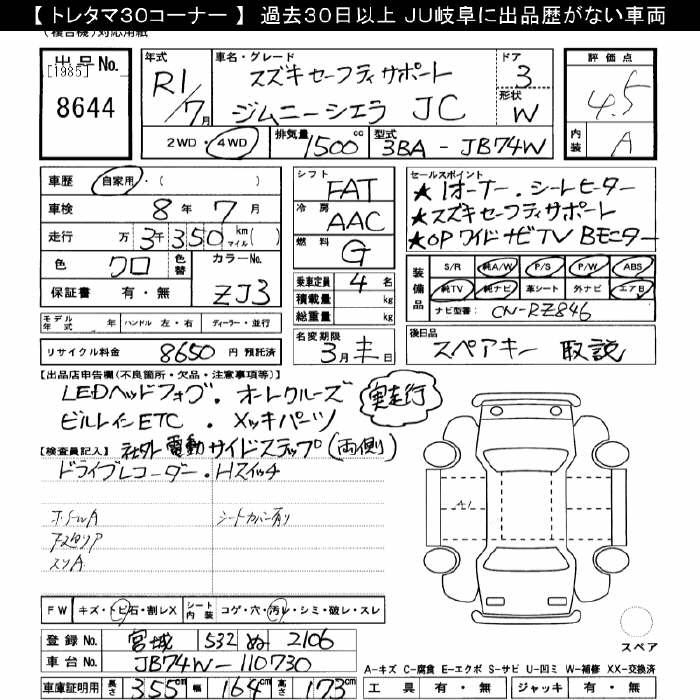 【 トレタマ30コーナー 】 過去30日以上 JU岐阜に出品歴がない車両
(複合機)対応用紙
出品No. [1985] 8644
年式 R1/7月
車名・グレード スズキセーフティサポート ジムニーシエラ JC
ドア 3
形状 W
評価点 4.5
内装 A
2WD・4WD 排気量 1500cc 型式 3BA-JB74W
車歴 自家用・( )
車検 8年 7月
走行 万 3千 350 km マイル( )
色 クロ 色替 カラーNo. ZJ3
保証書 有・無
モデル年式 年 ハンドル 左・右 ディーラー・並行
リサイクル料金 8650円 預託済
シフト FAT
冷房 AAC
燃料 G
乗車定員 4名
積載量 kg
総重量 kg
名変期限 3月末日
セールスポイント
★1オーナー.シートヒーター
★スズキセーフティサポート
★OPワイドナビTV Bモニター
装備品 S/R 純A/W P/S P/W ABS
純TV 純ナビ 革シート 外ナビ エアB
ナビ型番: CN-RZ846
後日品 スペアキー 取説
【出品店申告欄(不良箇所・欠品・注意事項等)】
LEDヘッドフォグ.オートクルーズ 実走行
ビルトインETC.メッキパーツ
【検査員記入】 社外電動サイドステップ(両側)
ドライブレコーダー.Hスイッチ
シートカバー有り
A1
FW キズ・トビ石・割レX シート内装 コゲ・穴・汚レ・シミ・破レ・スレ
登録No. 宮城 532 ぬ 2106
車台No. JB74W-110730
車庫証明用 長さ 355cm 幅 164cm 高さ 173cm
スペア
A-キズ C-腐食 E-エクボ S-サビ U-凹ミ W-補修 XX-交換済
工具 有・無 ジャッキ 有・無